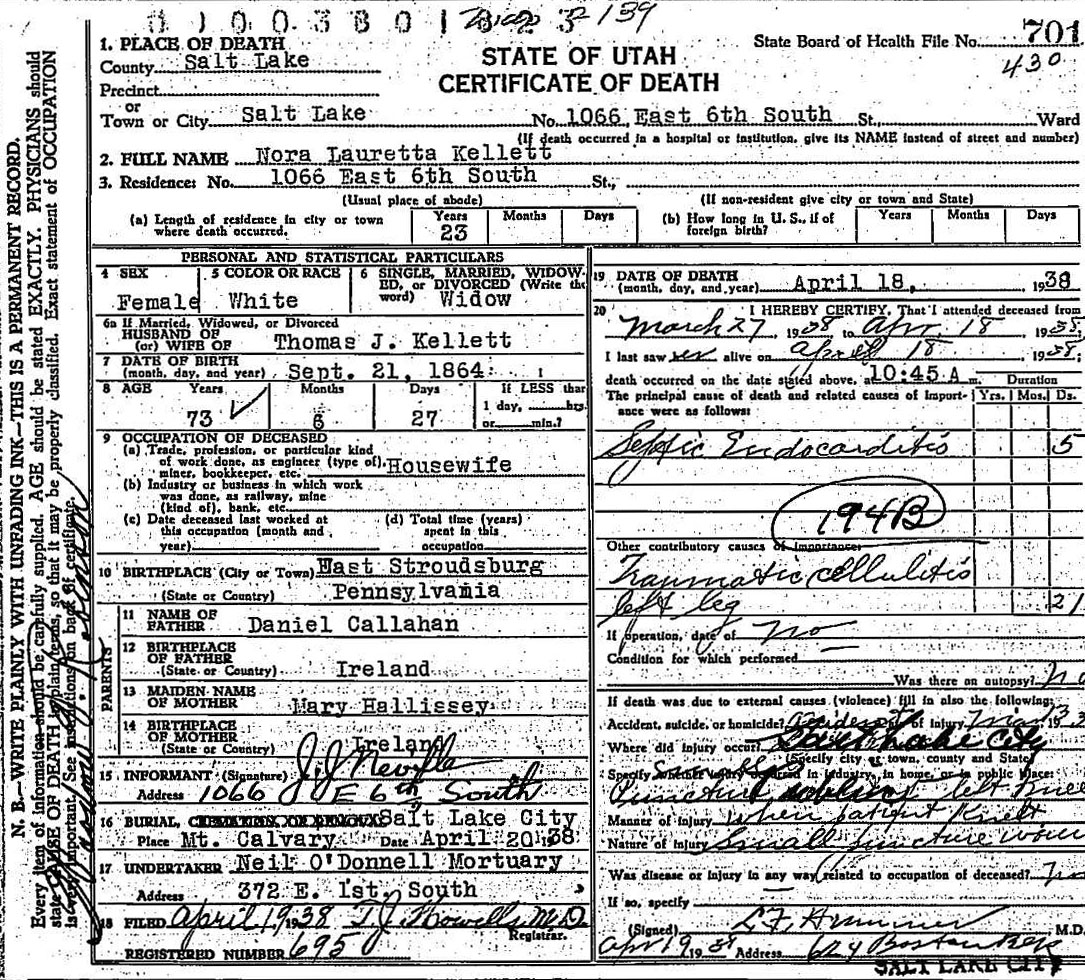 0 1 0 0 3 8 0 1 8 2 3 - 139
State Board of Health File No. 701
430
STATE OF UTAH
CERTIFICATE OF DEATH
1. PLACE OF DEATH
County Salt Lake
Precinct
or
Town or City Salt Lake No. 1066 East 6th South St. Ward
(If death occurred in a hospital or institution, give its NAME instead of street and number)
2. FULL NAME Nora Lauretta Kellett
3. Residence: No. 1066 East 6th South St.,
(Usual place of abode) (If non-resident give city or town and State)
(a) Length of residence in city or town where death occurred. Years 23 Months Days
(b) How long in U. S., if of foreign birth? Years Months Days
PERSONAL AND STATISTICAL PARTICULARS
4 SEX Female
5 COLOR OR RACE White
6 SINGLE, MARRIED, WIDOWED, or DIVORCED (Write the word) Widow
6a If Married, Widowed, or Divorced
HUSBAND OF
(or) WIFE OF Thomas J. Kellett
7 DATE OF BIRTH
(month, day, and year) Sept. 21, 1864
8 AGE Years Months Days If LESS than
73 6 27 1 day, hrs.
or min.?
9 OCCUPATION OF DECEASED
(a) Trade, profession, or particular kind
of work done, as engineer (type of), Housewife
miner, bookkeeper, etc.
(b) Industry or business in which work
was done, as railway, mine
(kind of), bank, etc.
(c) Date deceased last worked at
this occupation (month and
year)
(d) Total time (years)
spent in this
occupation
10 BIRTHPLACE (City or Town) East Stroudsburg
(State or Country) Pennsylvamia
PARENTS
11 NAME OF
FATHER Daniel Callahan
12 BIRTHPLACE
OF FATHER
(State or Country) Ireland
13 MAIDEN NAME
OF MOTHER Mary Hallissey
14 BIRTHPLACE
OF MOTHER
(State or Country) Ireland
15 INFORMANT (Signature) J. J.
Address 1066 E 6th South
16 BURIAL, CREMATION OR REMOVAL Salt Lake City
Place Mt. Calvary Date April 20 1938
17 UNDERTAKER Neil O'Donnell Mortuary
Address 372 E. 1st. South
18 FILED April 19, 1938 T.J. Howells M.D.
Registrar.
REGISTERED NUMBER 695
19 DATE OF DEATH
(month, day, and year) April 18, 1938
20 I HEREBY CERTIFY, That I attended deceased from
March 27 1938 to Apr 18 1938,
I last saw her alive on April 18 1938,
death occurred on the date stated above, at 10:45 A m. Duration
The principal cause of death and related causes of import- Yrs. Mos. Ds.
ance were as follows:
Septic Endocarditis 5
194B
Other contributory causes of importance:
Traumatic cellulitis
left leg 21
If operation, date of no
Condition for which performed
Was there an autopsy? No
If death was due to external causes (violence) fill in also the following:
Accident, suicide, or homicide? accident of injury Mar 19
Where did injury occur? Salt Lake City
(Specify city or town, county and State)
Specify whether injury occurred in industry, in home, or in public place:
Puncture left knee
Manner of injury when patient knelt
Nature of Injury Small puncture wou
Was disease or injury in any way related to occupation of deceased? no
If so, specify
(Signed) L. F. Hummer M.D.
Apr 19 1938 Address Boston
SALT LAKE CITY
N. B.—WRITE PLAINLY WITH UNFADING INK—THIS IS A PERMANENT RECORD.
Every item of information should be carefully supplied. AGE should be stated EXACTLY. PHYSICIANS should
state CAUSE OF DEATH in plain terms, so that it may be properly classified. Exact statement of OCCUPATION
is very important. See instructions on back of certificate.